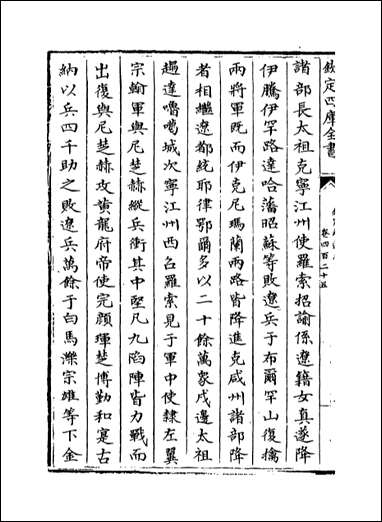 欽定四庫全書
卷四百二十五
諸部長太祖克寧江州使羅索招諭係遼籍女真遂降
伊騰伊罕路達哈藩昭蘇等敗遼兵于布爾罕山復擒
兩將軍既而伊克尼瑪蘭兩路皆降進克咸州諸部降
者相繼遼都統耶律鄂爾多以二十餘萬衆戍邊太祖
趨達嚕噶城次寧江州西召羅索見于軍中使隸左翼
宗翰軍與尼楚赫縱兵衝其中堅凡九陷陣皆力戰而
出復與尼楚赫攻黃龍府帝使完顏琿楚博勒和寔古
納以兵四千助之敗遼兵萬餘于白馬濼宗雄等下金